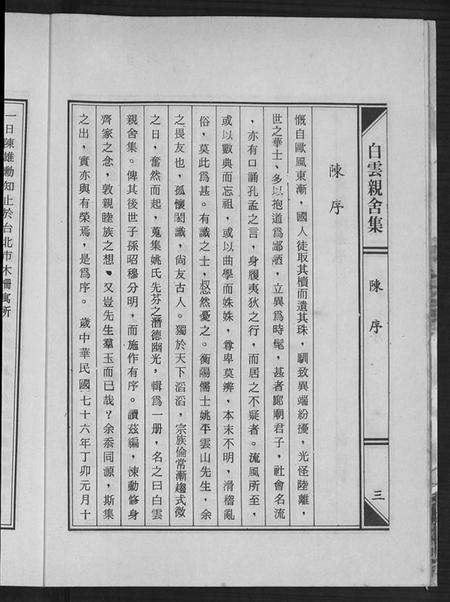 白雲親舍集
陳序
三
陳序
慨自歐風東漸，國人徒取其櫝而遺其珠，馴致異端紛擾，光怪陸離，
世之華士、多以抱道為鄙陋，立異為時髦，甚者廊廟君子，社會名流
，亦有口誦孔孟之言，身履夷狄之行，而居之不疑者。流風所至，
或以數典而忘祖，或以曲學而姝姝，尊卑莫辨，本末不明，滑稽亂
俗，莫此為甚。有識之士，惄然憂之。衡陽儒士姚平雲山先生，余
之畏友也，孤懷閎識，尚友古人。獨於天下滔滔，宗族倫常漸趨式微
之日，奮然而起，蒐集姚氏先芬之潛德幽光，輯為一册，名之曰白雲
親舍集。俾其後世子孫昭穆分明，而施作有序。讀茲編，悚動修身
齊家之念，敦親睦族之想，又豈先生羣玉而已哉？余忝同源，斯集
之出，實亦與有榮焉，是為序。歲中華民國七十六年丁卯元月十
一日陳雄勳知止於台北市木柵寓所